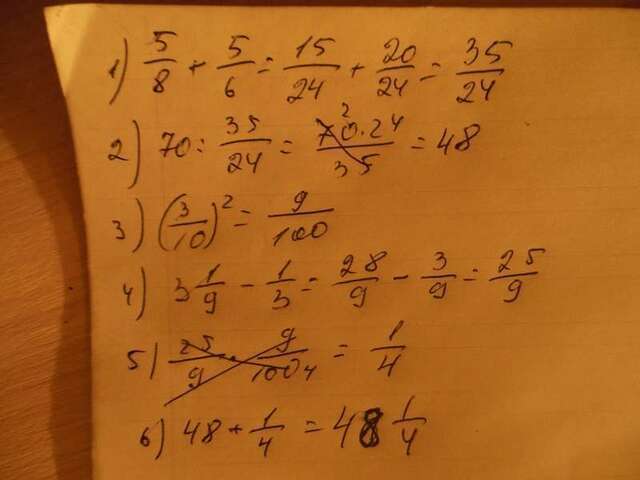 1) 5/8 + 5/6 = 15/24 + 20/24 = 35/24
2) 70 : 35/24 = 70² · 24/35 = 48
3) (3/10)² = 9/100
4) 3 1/9 - 1/3 = 28/9 - 3/9 = 25/9
5) 25/9 · 9/100 4 = 1/4
6) 48 + 1/4 = 48 1/4